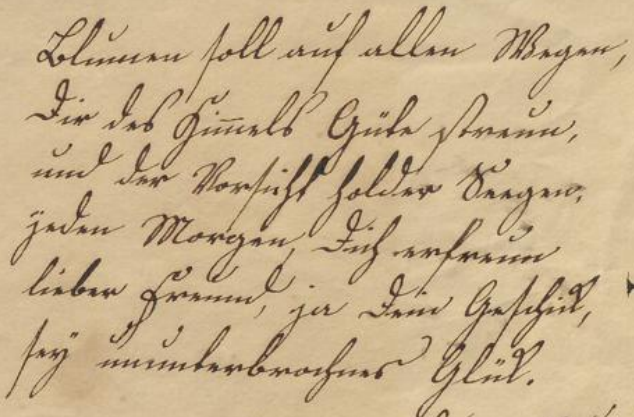 Blumen soll auf allen Wegen,
Dir des Him̅els Güte streun,
und der Vorsicht holder Seegen,
jeden Morgen, Dich erfreun
lieber Freund, ja Dein Geschik,
sey ununterbrochnes Glük.